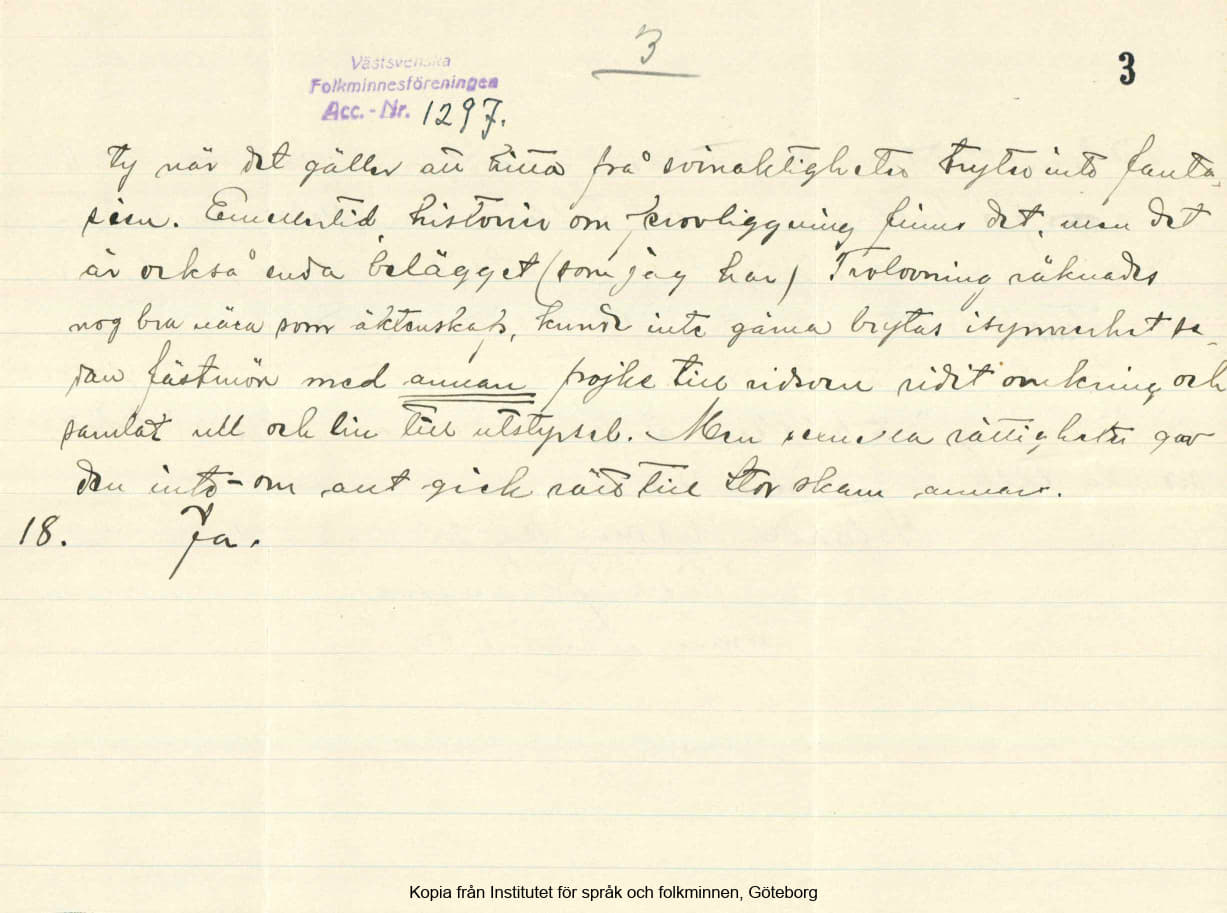 3
3
Västsvenska
Folkminnesföreningen
Acc. - Nr. 1297.
ty när det gäller att hitta på svinaktigheter tryter inte fanta-
sien. Emellertid, historier om provliggning finns det, men det
är också enda belägget (som jag har) Trolovning räknades
nog bra nära som äktenskap, kunde inte gärna brytas isynnerhet se-
dan fästmön med annan pojke till ridsven ridit omkring och
samlat ull och lin till utstyrsel. Men rättigheter gav
den inte - om allt gick rätt till stor skam annars.
18. Ja.
Kopia från Institutet för språk och folkminnen, Göteborg